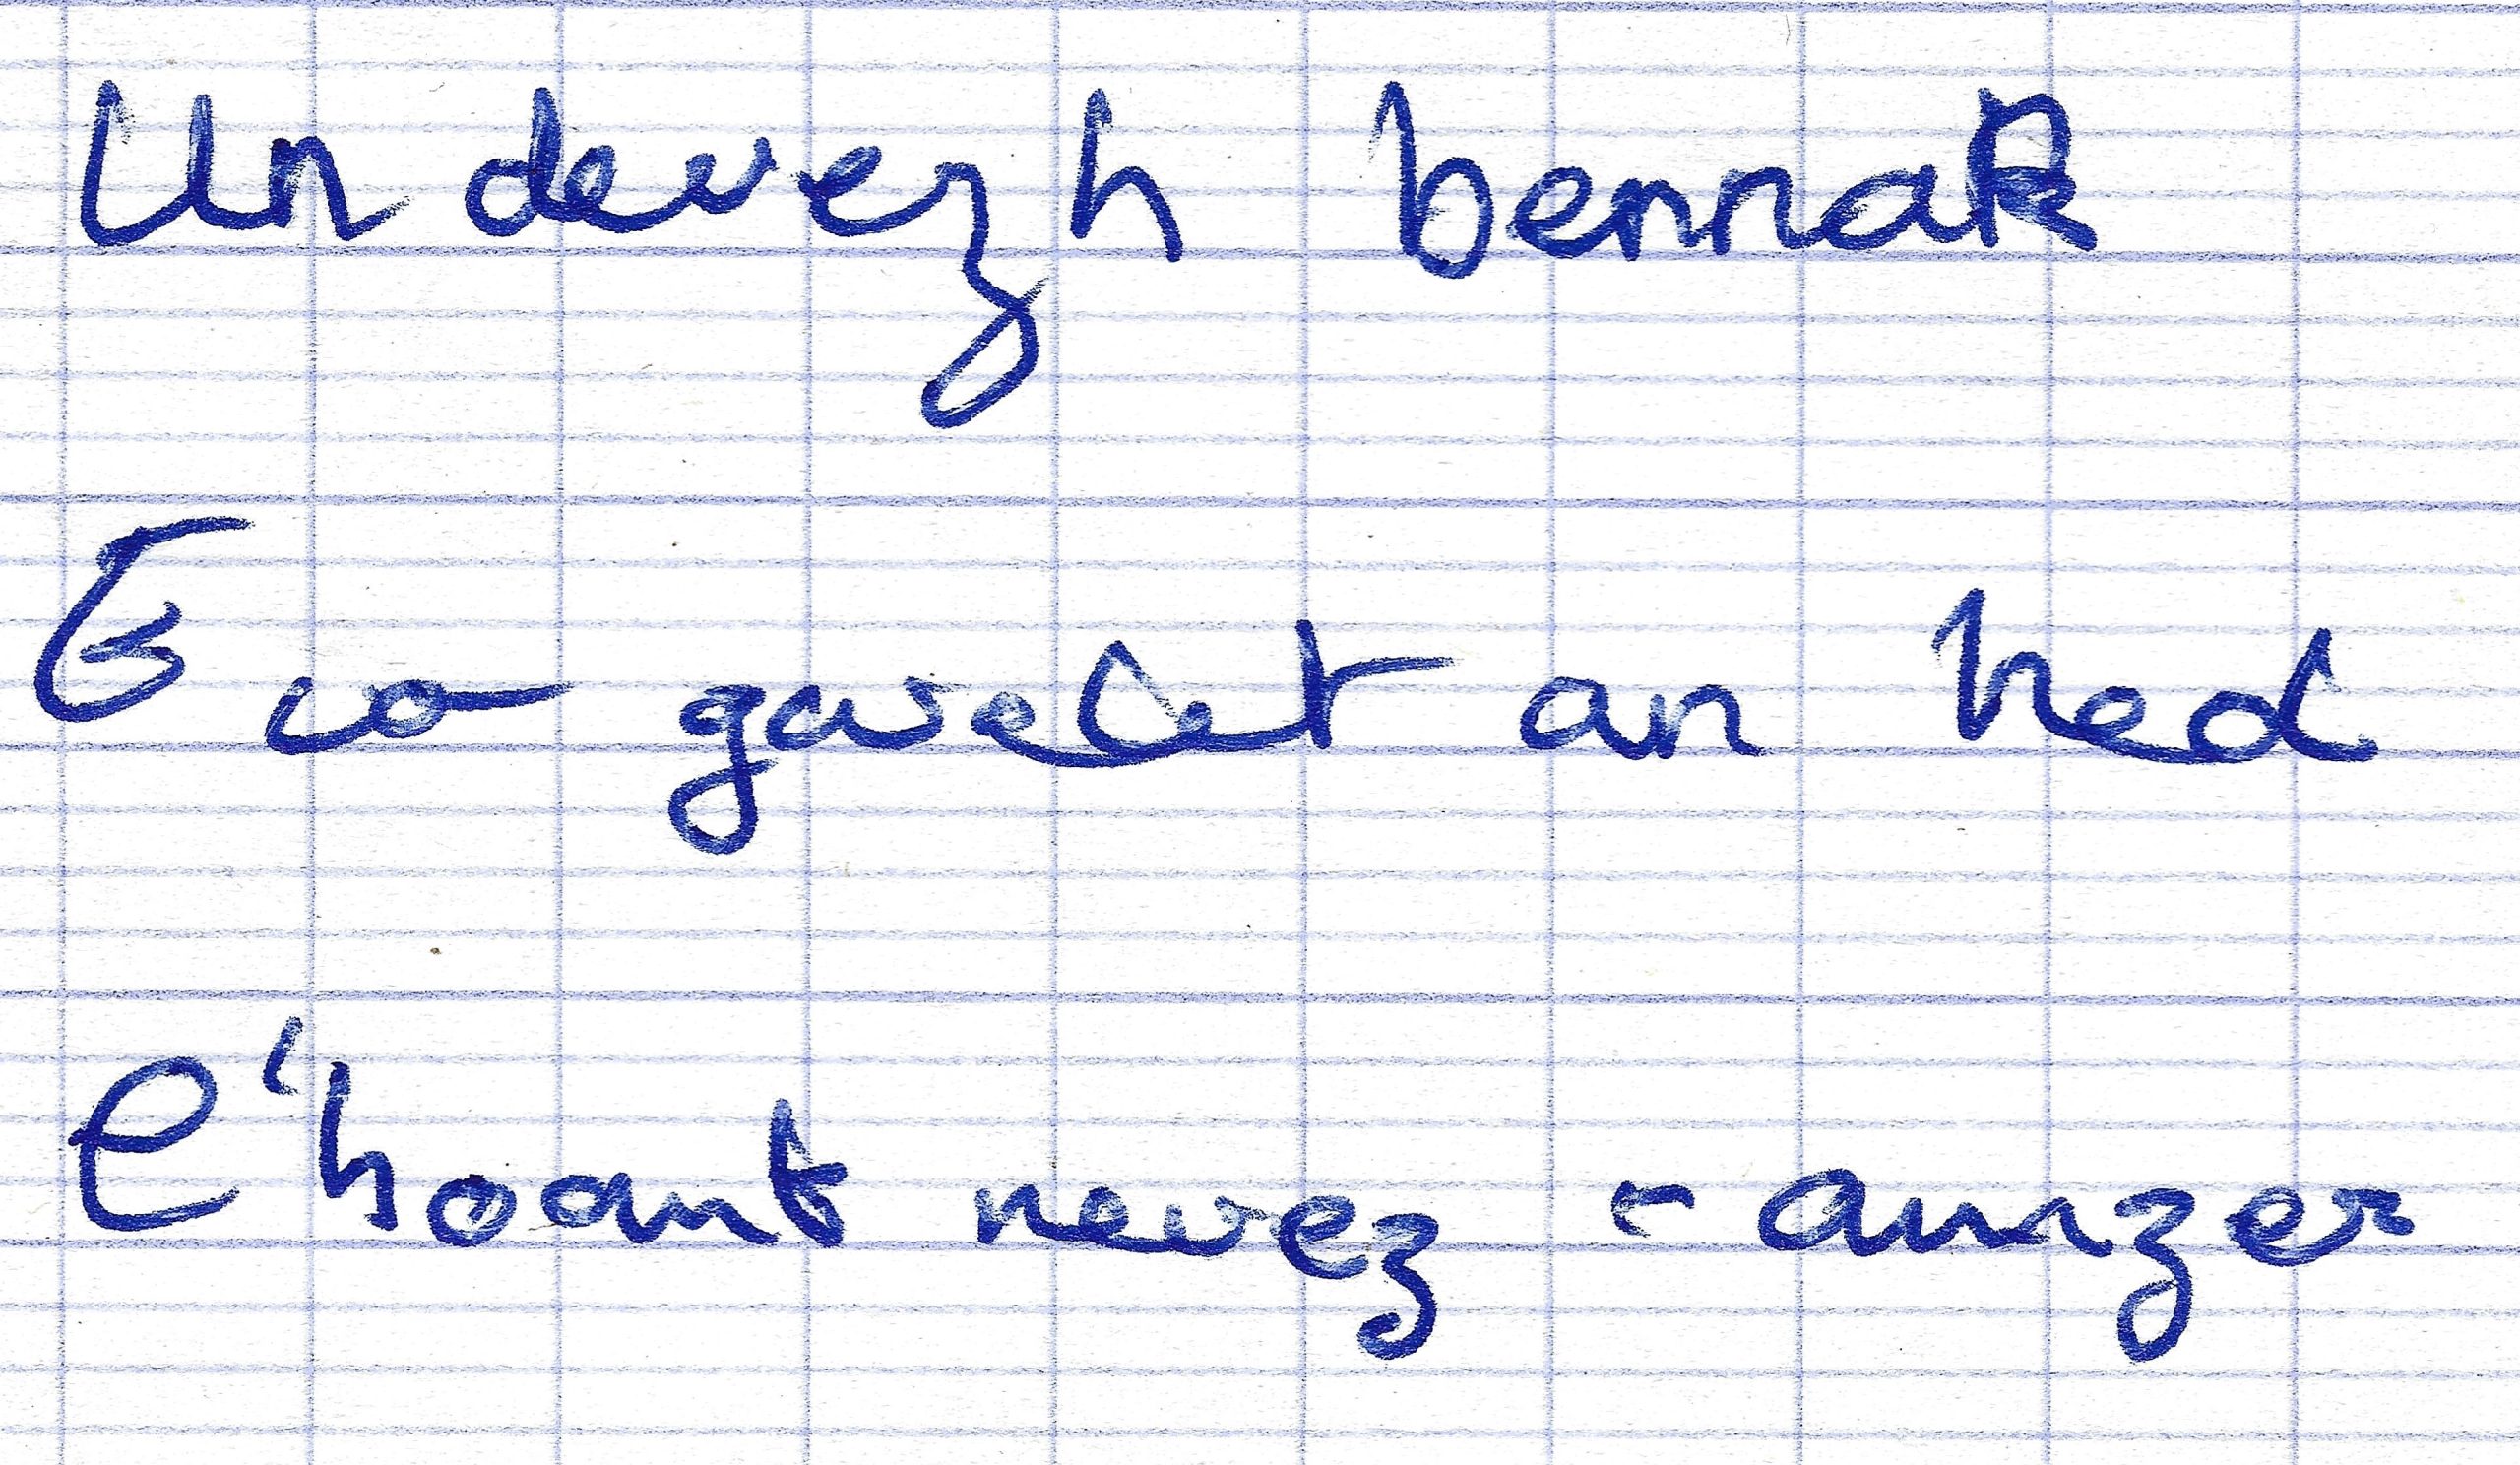 Un devezh bennak
E vo gwelet an hed
C'hoant nevez-amzer